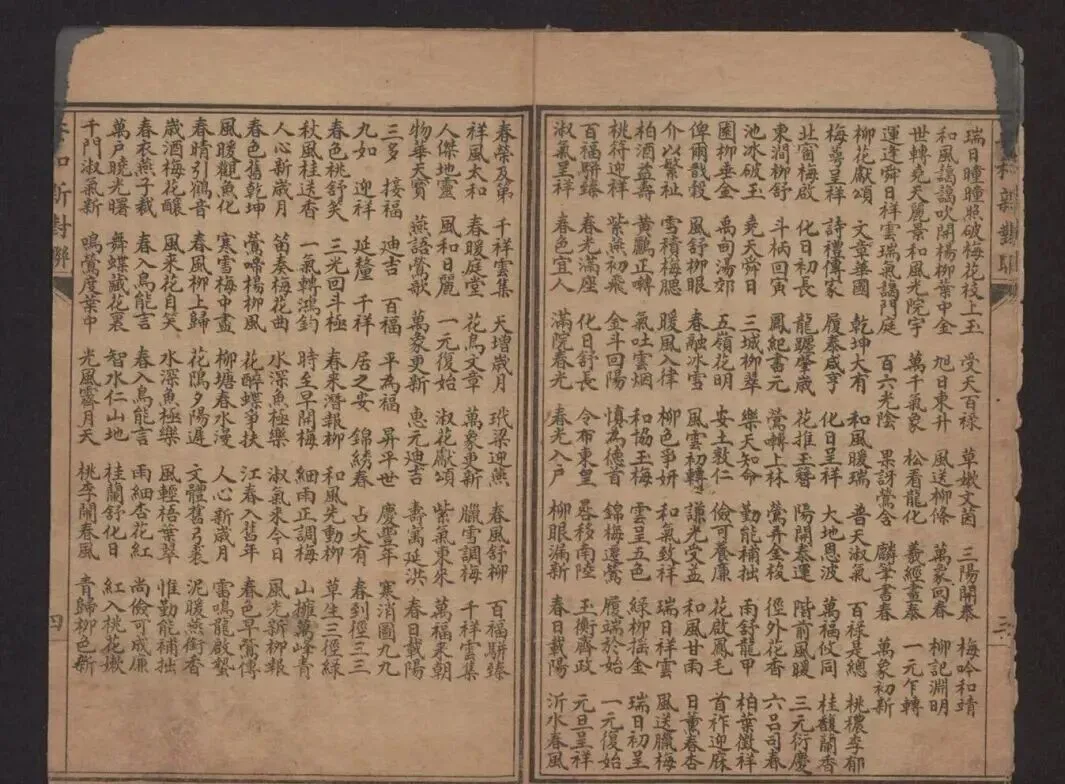 瑞日曈曈照破梅花枝上玉 受天百祿 草嫩文茵 三陽開泰 梅吟和靖
和風謁謁吹開楊柳葉中金 旭日東升 風送柳條 萬象回春 柳記淵明
世轉堯天麗景和風光院宇 萬千氣象 松看龍化 羲經畫泰 一元乍轉
運逢舜日祥雲瑞氣謁門庭 百六光陰 果訝鶯含 麟筆書春 萬象初新
柳花獻頌 文章華國 乾坤大有 和風暖瑞 普天淑氣 百祿是總 桃穠李郁
梅萼呈祥 詩禮傳家 履泰咸亨 化日呈祥 大地恩波 萬福攸同 桂馥蘭香
北窗梅啟 化日初長 龍躔肇歲 花推玉簪 陽開泰運 階前風暖 三元衍慶
東澗柳舒 斗柄回寅 鳳紀書元 鶯轉上林 鶯弄金梭 徑外花香 六呂司春
池冰破玉 堯天舜日 三城柳翠 樂天知命 勤能補拙 雨舒龍甲 柏葉徵祥
園柳垂金 禹甸湯郊 五嶺花明 安土敦仁 儉可養廉 花啟鳳毛 首祚迎庥
俾爾戩穀 風舒柳眼 春融冰雪 風雲初轉 謙光受益 和風甘雨 日薰春杏
介以繁祉 雪積梅腮 暖風入律 柳色爭妍 和氣致祥 瑞日祥雲 風送臘梅
柏酒益壽 黃鸝正囀 氣吐雲烟 和協玉梅 雲呈五色 綠柳搖金 瑞日初呈
桃符迎祥 紫燕初飛 金斗回陽 慎為德首 錦梅遷鶯 履端於始 一元復始
百福駢臻 春光滿座 化日舒長 令布東皇 晷移南陸 玉衡齊政 元旦呈祥
淑氣呈祥 春色宜人 滿院春光 春光入戶 柳眼漏新 春日載陽 沂水春風
春榮及第 千祥雲集 天增歲月 玳梁迎燕 春風舒柳 百福駢臻
祥風太和 春暖庭堂 花鳥文章 萬象更新 臘雪調梅 千祥雲集
人傑地靈 風和日麗 一元復始 淑花獻頌 紫氣東來 萬福來朝
物華天寶 燕語鶯歌 萬象更新 惠元迪吉 壽萬延洪 春日載陽
三多 接福 迪吉 百福 平為福 昇平世 慶豐年 寒消圖九九
九如 迎祥 延釐 千祥 居之安 錦綉春 占大有 春到徑三三
春色桃舒笑 三光回斗極 春來潛報柳 和風先動柳 草生三徑綠
秋風桂送香 一氣轉鴻鈞 時至早開梅 細雨正調梅 山擁萬峰青
人心新歲月 笛奏梅花曲 水深魚極樂 淑氣來今日 風光新柳報
春色舊乾坤 鶯啼楊柳風 花醉蝶爭扶 江春入舊年 春色早鶯傳
風暖觀魚化 寒雪梅中盡 柳塘春水漫 人心新歲月 雷鳴龍啟蟄
春晴引鶴音 春風柳上歸 花隝夕陽遲 文體舊弓裘 泥暖燕銜香
歲酒梅花釀 風來花自笑 水深魚極樂 風輕梧葉翠 惟勤能補拙
春衣燕子裁 春入鳥能言 春入鳥能言 雨細杏花紅 尚儉可成廉
萬戶曉光曙 舞蝶藏花裏 智水仁山地 桂蘭舒化日 紅入桃花嫩
千門淑氣新 鳴鶯度葉中 光風霽月天 桃李鬧春風 青歸柳色新
和新對聯
四